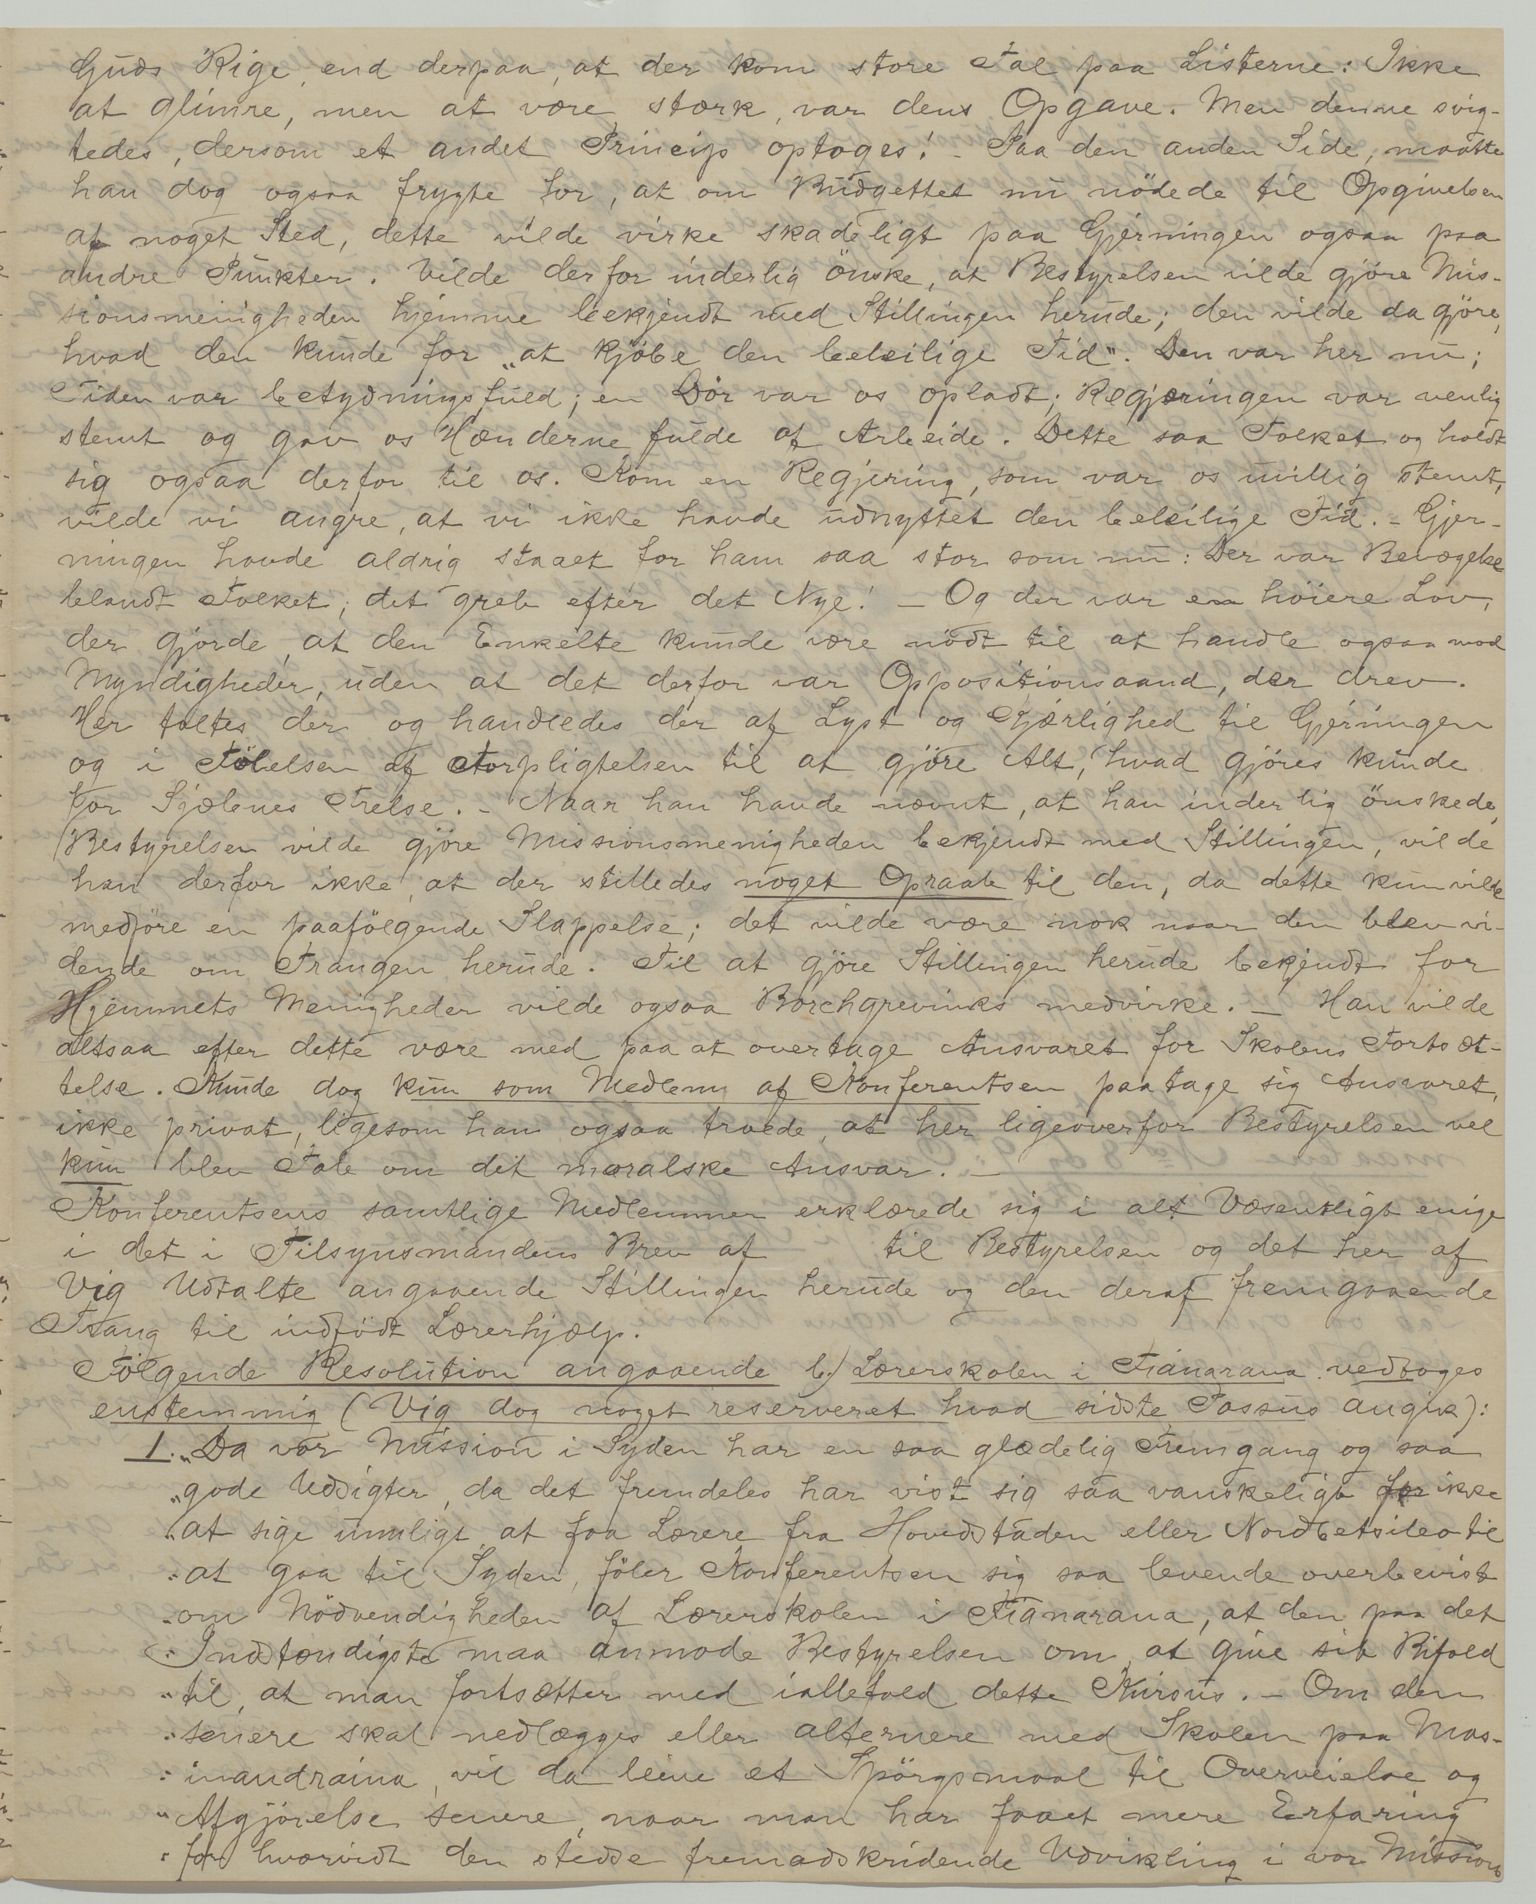 Guds Rige, end derpaa, at der kom store Tal paa Listerne: Ikke
at glimre, men at være stærk, var dens Opgave. Men denne svig-
tedes, dersom et andet Princip optoges! – Paa den anden Side, maatte
han dog ogsaa frygte for, at om Budgettet nu nödede til Opgivelsen
af noget Sted, dette vilde virke skadeligt paa Gjerningen ogsaa paa
andre Punkter. Vilde derfor inderlig önske, at Bestyrelsen vilde gjöre Mis-
sionsmenigheden hjemme bekjendt med Stillingen herude; den vilde da gjöre,
hvad den kunde for "at kjöbe den beleilige Tid". Den var her nu;
Tiden var betydningsfuld; en Dör var os opladt; Regjæringen var venlig
stemt og gav os Hænderne fulde af Arbeide. Dette saa Folket og holdt
sig ogsaa derfor til os. Kom en Regjering, som var os uvillig stemt,
vilde vi angre, at vi ikke havde udnyttet den beleilige Tid. – Gjer-
ningen havde aldrig staaet for ham saa stor som nu: Der var Bevægelse
blandt Folket, det greb efter det Nye! – Og der var en höiere Lov,
der gjorde, at den Enkelte kunde være nödt til at handle ogsaa mod
Myndigheder, uden at det derfor var Oppositionsaand, der drev.
Her taltes der og handledes der af Lyst og Kjærlighed til Gjerningen
og i Fölelsen af Forpligtelsen til at gjöre Alt, hvad gjöres kunde
for Sjælenes Frelse. – Naar han havde nævnt, at han inderlig önskede,
Bestyrelsen vilde gjöre Missionsmenigheden bekjendt med Stillingen, vilde
han derfor ikke, at der stilledes noget Opraab til den, da dette kun vilde
medföre en paafölgende Slappelse; det vilde være nok naar den blev vi-
dende om Trangen herude. Til at gjöre Stillingen herude bekjendt for
Hjemmets Menigheder vilde ogsaa Borchgrevinks medvirke. – Han vilde
altsaa efter dette være med paa at overtage Ansvaret for Skolens Fortsæt-
telse. Kunde dog kun som Medlem af Konferentsen paatage sig Ansvaret,
ikke privat, ligesom han ogsaa troede, at her ligeoverfor Bestyrelsen vel
kun blev Tale om det moralske Ansvar. –
Konferentsens samtlige Medlemmer erklærede sig i alt Væsentligt enige
i det i Tilsynsmandens Brev af til Bestyrelsen og det her af
Vig Udtalte angaaende Stillingen herude og den deraf fremgaaende
Trang til indfödt Lærerhjælp.
Fölgende Resolution angaaende b) Lærerskolen i Fianarana vedtoges
enstemmig (Vig dog noget reserveret hvad sidste Passus angik):
1. "Da vor Mission i Syden har en saa glædelig Fremgang og saa
"gode Udsigter, da det fremdeles har vist sig saa vanskeligt for ikke
"at sige umuligt at faa Lærere fra Hovedstaden eller Nordbetsileo til
"at gaa til Syden, föler Konferentsen sig saa levende overbevist
"om Nödvendigheden af Lærerskolen i Fianarana, at den paa det
"Indstændigste maa anmode Bestyrelsen om, at give sit Bifald
"til, at man fortsætter med iallefald dette Kursus. – Om den
"senere skal nedlægges eller alternere med Skolen paa Mas-
"inandraina, vil da blive et Spörgsmaal til Overveielse og
"Afgjörelse senere, naar man har faaet mere Erfaring
"for hvorvidt den stedse fremadskridende Udvikling i vor Missions